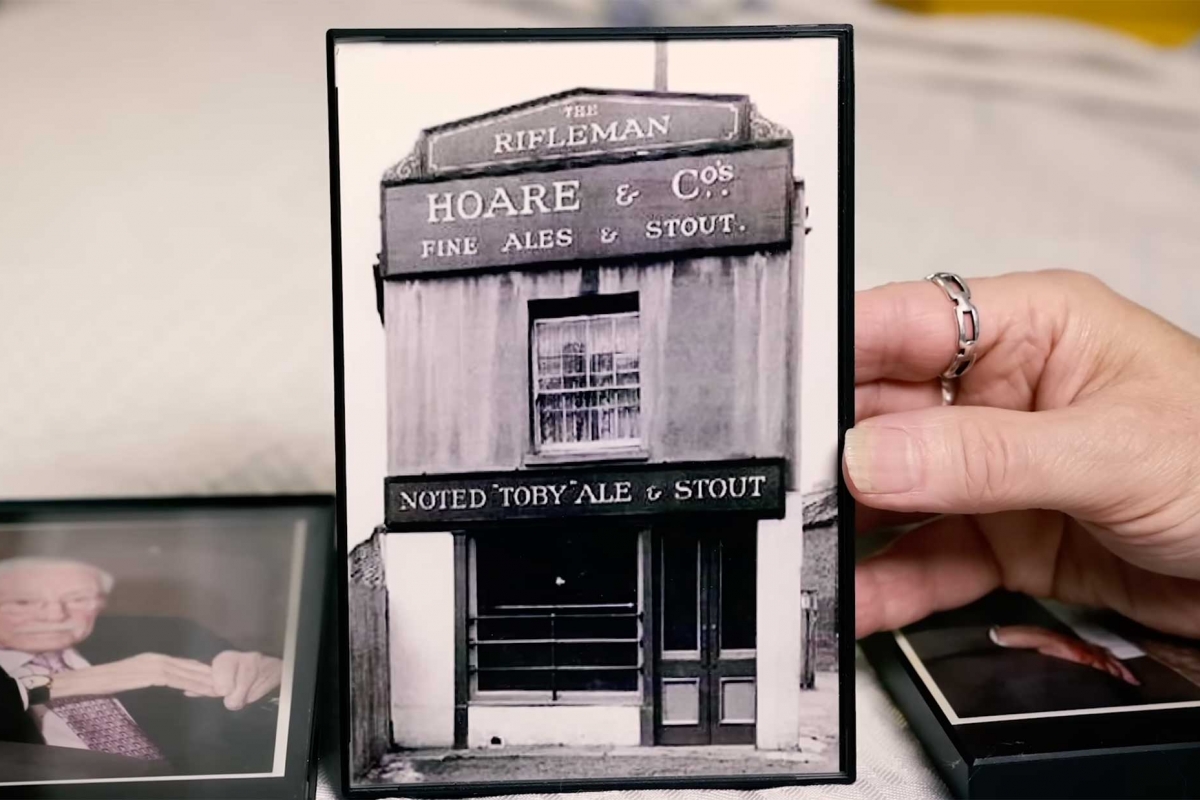 THE
RIFLEMAN
HOARE & Co's
FINE ALES & STOUT.
NOTED "TOBY" ALE & STOUT